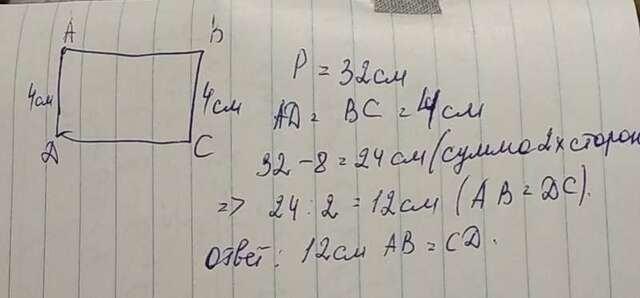 A B
4см 4см
D C
P = 32см
AD = BC = 4см
32 - 8 = 24см (сумма 2х сторон
=> 24 : 2 = 12см (AB = DC).
ответ: 12см AB = CD.